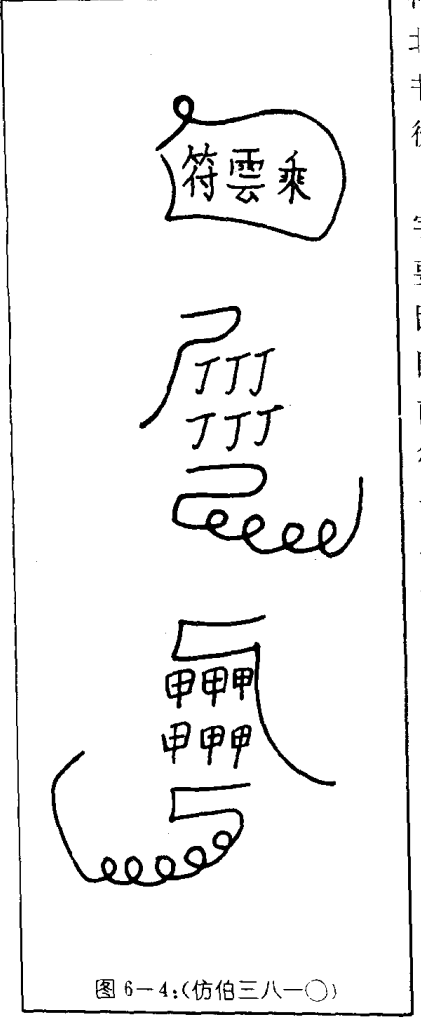 乘雲符
丁丁丁
丁丁丁
甲甲甲
甲甲甲
图 6－4:(仿伯三八一〇)